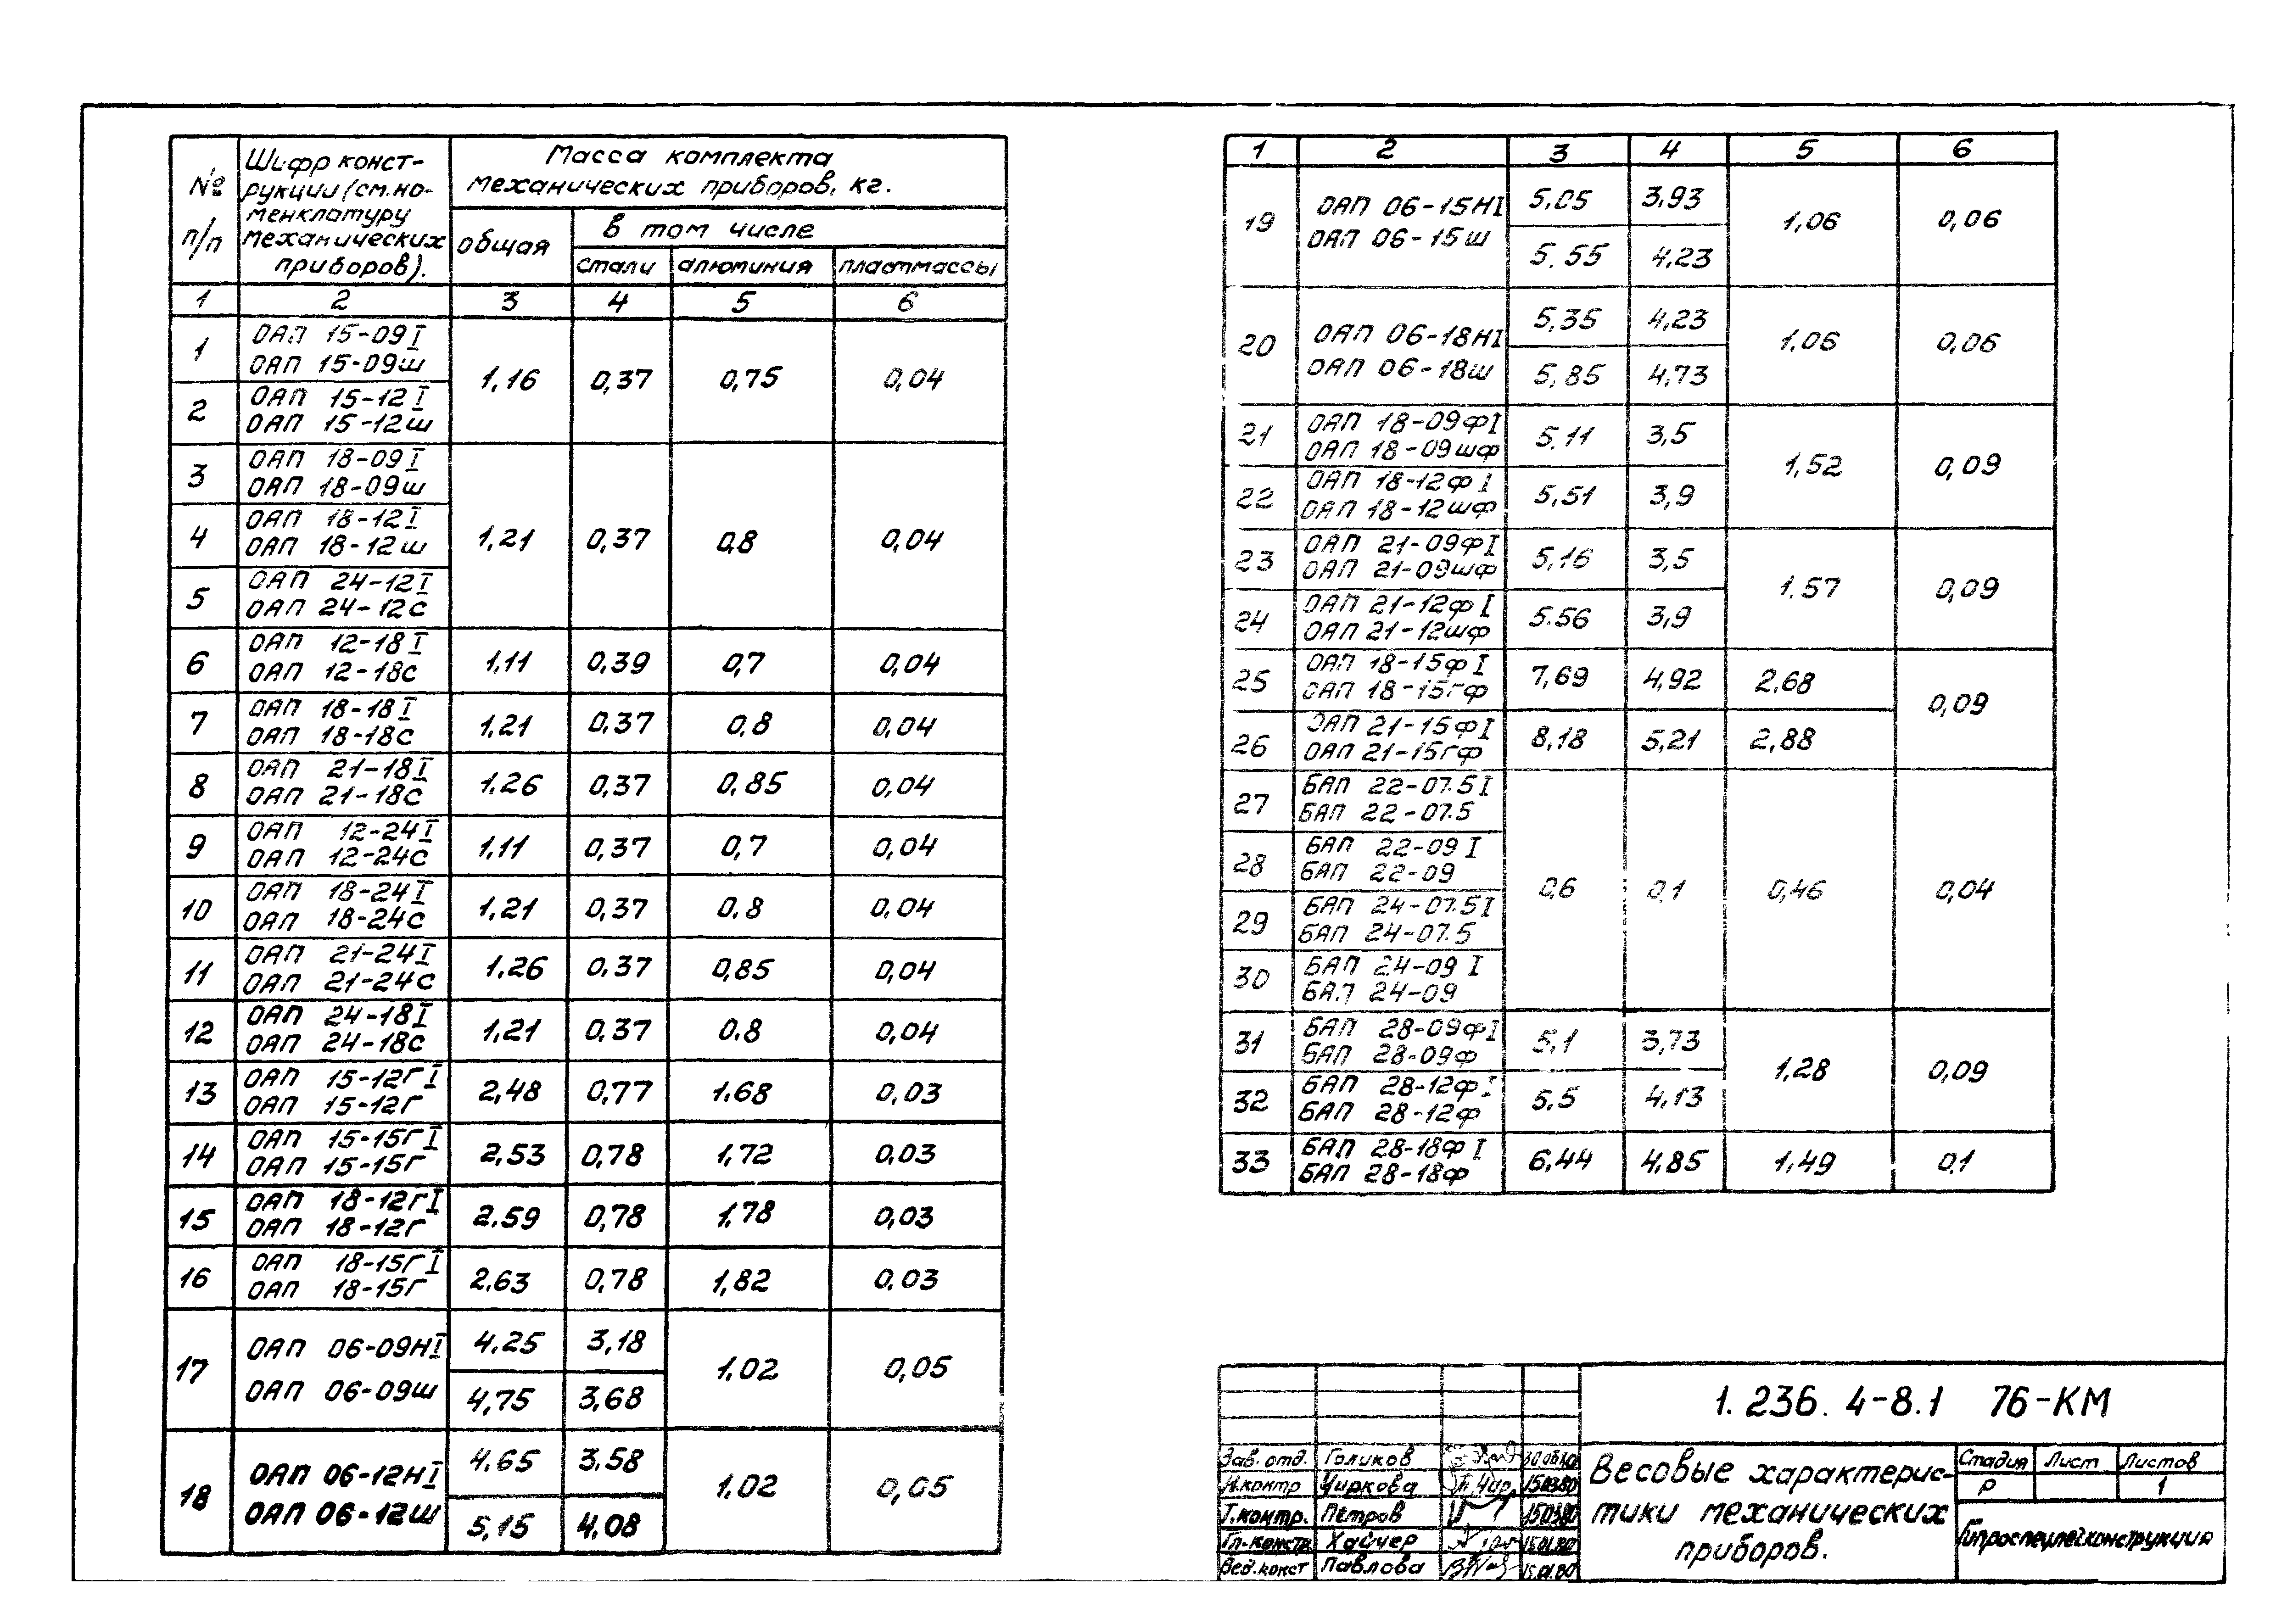 № п/п
Шифр конст-
рукции (см. но-
менклатуру
механических
приборов).
Масса комплекта
механических приборов, кг.
общая
в том числе
стали алюминия пластмассы
1 2 3 4 5 6
1 ОАП 15-09I
ОАП 15-09ш
1,16 0,37 0,75 0,04
2 ОАП 15-12I
ОАП 15-12ш
3 ОАП 18-09I
ОАП 18-09ш
4 ОАП 18-12I
ОАП 18-12ш
1,21 0,37 0,8 0,04
5 ОАП 24-12I
ОАП 24-12С
6 ОАП 12-18I
ОАП 12-18С
1,11 0,39 0,7 0,04
7 ОАП 18-18I
ОАП 18-18С
1,21 0,37 0,8 0,04
8 ОАП 21-18I
ОАП 21-18С
1.26 0,37 0.85 0,04
9 ОАП 12-24I
ОАП 12-24С
1,11 0,37 0,7 0,04
10 ОАП 18-24I
ОАП 18-24С
1,21 0,37 0.8 0,04
11 ОАП 21-24I
ОАП 21-24С
1.26 0,37 0,85 0,04
12 ОАП 24-18I
ОАП 24-18С
1,21 0,37 0.8 0,04
13 ОАП 15-12ГI
ОАП 15-12Г
2,48 0,77 1.68 0,03
14 ОАП 15-15ГI
ОАП 15-15Г
2,53 0,78 1,72 0,03
15 ОАП 18-12ГI
ОАП 18-12Г
2.59 0,78 1,78 0,03
16 ОАП 18-15ГI
ОАП 18-15Г
2,63 0,78 1,82 0,03
17 ОАП 06-09НI
ОАП 06-09ш
4.25 3,18
4,75 3,68
1.02 0,05
18 ОАП 06-12НI
ОАП 06-12ш
4.65 3.58
5,15 4,08
1.02 0,05
1 2 3 4 5 6
19 ОАП 06-15НI
ОАП 06-15ш
5,05 3,93
5.55 4,23
1,06 0,06
20 ОАП 06-18НI
ОАП 06-18ш
5,35 4,23
5,85 4,73
1.06 0,06
21 ОАП 18-09ФI
ОАП 18-09шф
5.11 3,5
1,52 0,09
22 ОАП 18-12ФI
ОАП 18-12шф
5,51 3,9
23 ОАП 21-09ФI
ОАП 21-09шф
5,16 3,5
1.57 0,09
24 ОАП 21-12ФI
ОАП 21-12шф
5.56 3,9
25 ОАП 18-15ФI
ОАП 18-15гф
7,69 4,92 2.68
0,09
26 ОАП 21-15ФI
ОАП 21-15гф
8,18 5,21 2,88
27 БАП 22-07.5I
БАП 22-07.5
28 БАП 22-09I
БАП 22-09
0,6 0,1 0,46 0,04
29 БАП 24-07.5I
БАП 24-07.5
30 БАП 24-09I
БАП 24-09
31 БАП 28-09ФI
БАП 28-09Ф
5,1 3,73
1,28 0,09
32 БАП 28-12ФI
БАП 28-12Ф
5,5 4,13
33 БАП 28-18ФI
БАП 28-18Ф
6,44 4,85 1,49 0,1
1.236.4-8.1 76-КМ
Зав. отд. Голиков
Н.контр Чиркова 150380
Т.контр. Петров 150380
Гл.констр Хайчер 15.01.80
Вед.конст Павлова 15.01.80
Весовые характерис-
тики механических
приборов.
Стадия Лист Листов
Р 1
Гипроспецлегконструкция